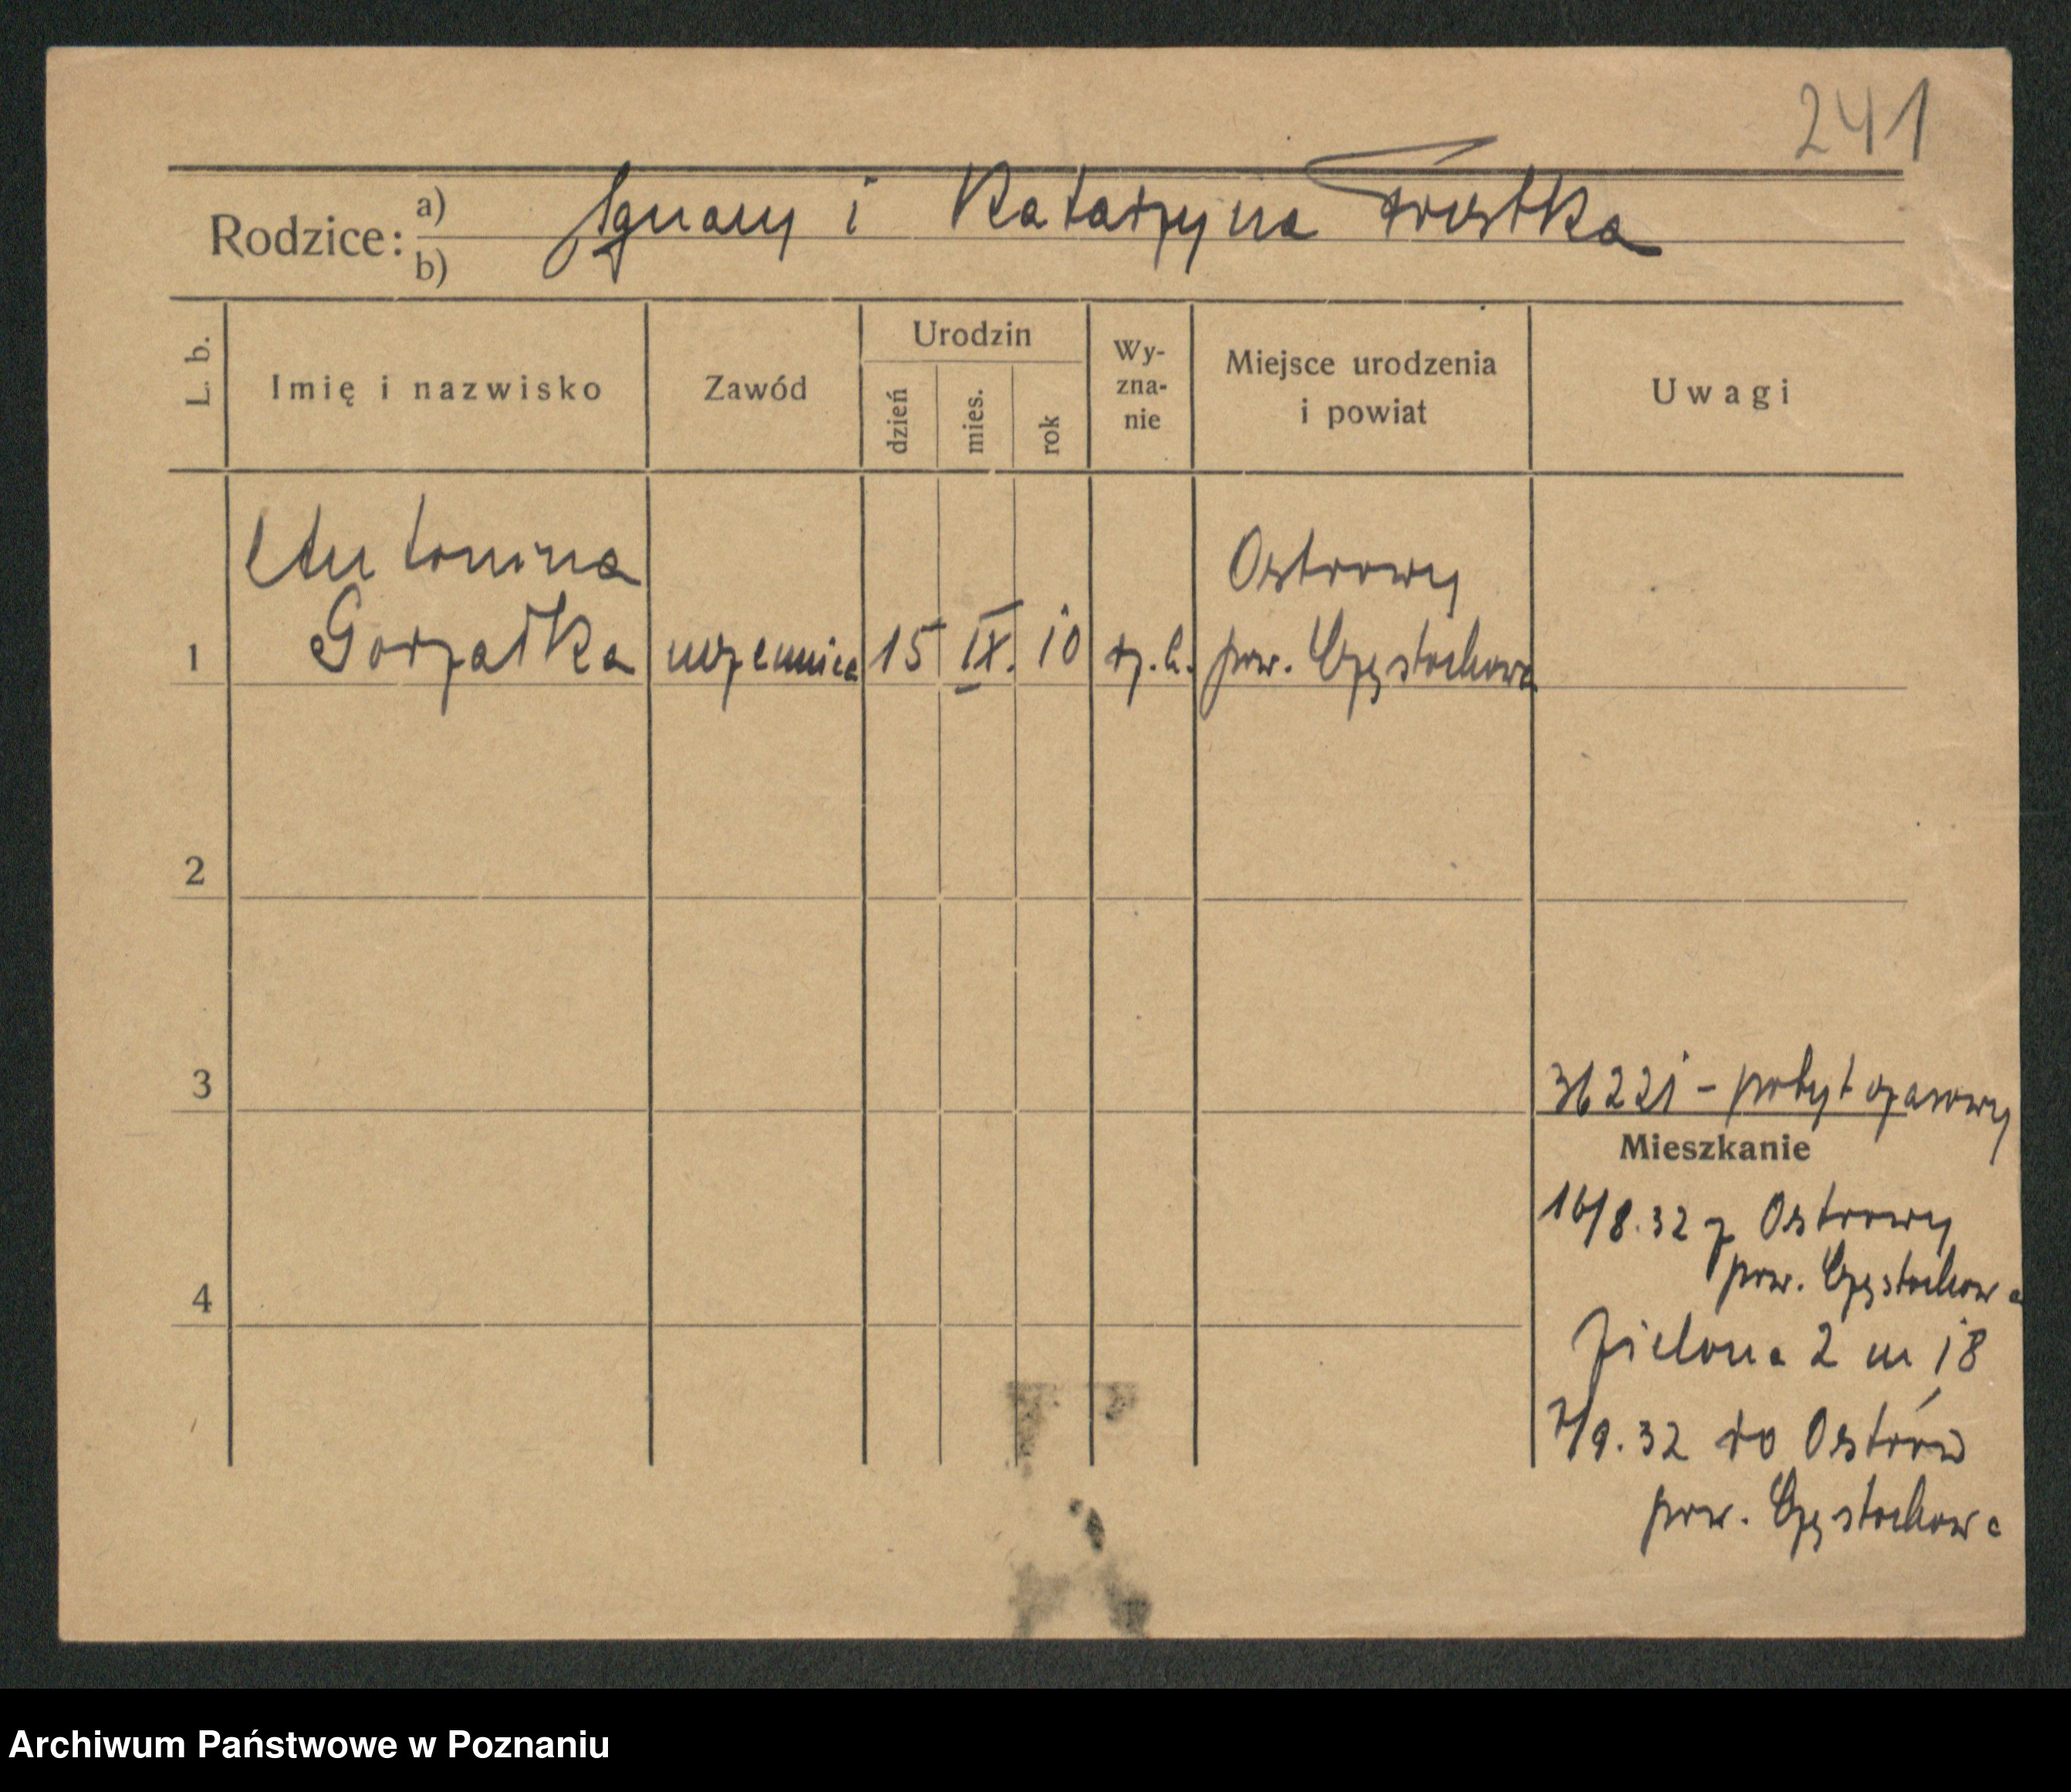 241
Rodzice: a) b) Ignacy i Katarzyna
L. b. Imię i nazwisko Zawód Urodzin dzień mies. rok Wy-zna-nie Miejsce urodzenia i powiat Uwagi
Antonina Ostrowy
1 Gorzałka uczennica 15 IX. 10 rz. k. pow. Częstochowa
2
3
36221 - pobyt czasowy
Mieszkanie
16/8.32 z Ostrowy
pow. Częstochowa
4
Zielona 2 m 18
7/9.32 do Ostrów
pow. Częstochowa
Archiwum Państwowe w Poznaniu